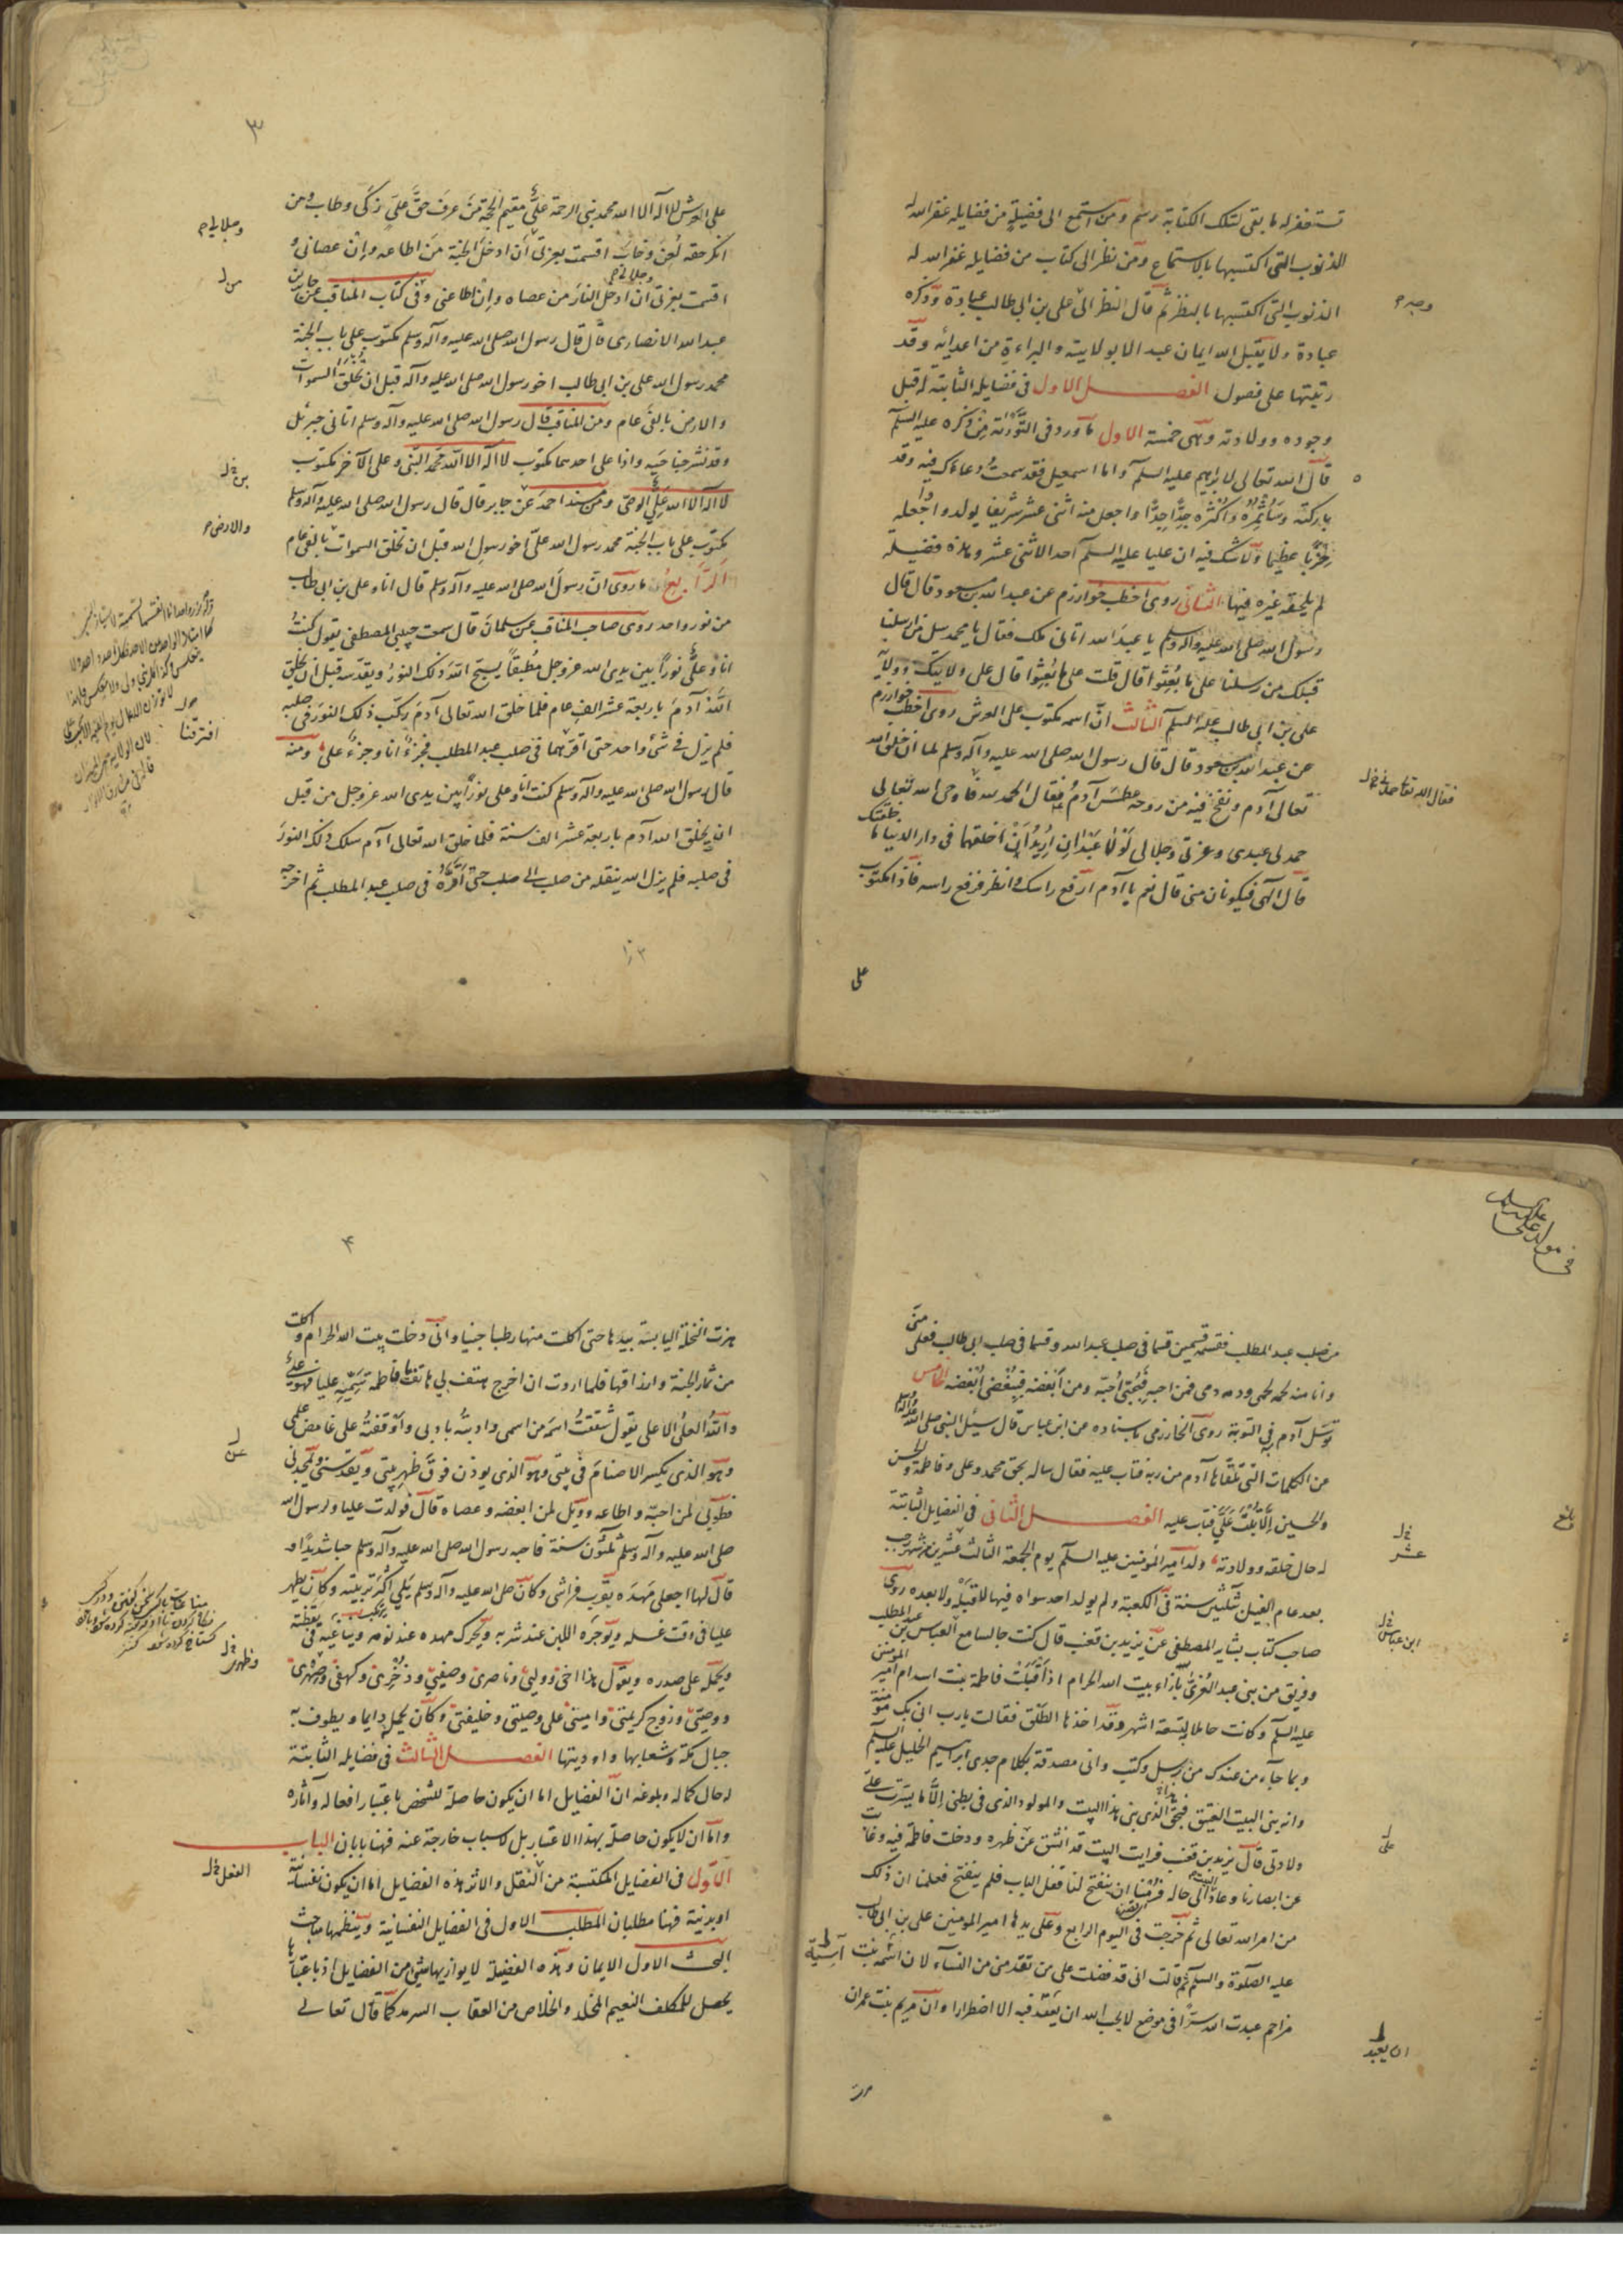 تستغفر له ما بقى لتلك الكتابة رسم ومن استمع الى فضيلة من فضايله غفر الله له
الذنوب التى اكتسبها بالاستماع ومن نظر الى كتاب من فضايله غفر الله له
الذنوب التى اكتسبها بالنظر ثم قال النظر الى على بن ابى طالب عبادة وذكره
عبادة ولا يقبل الله ايمان عبد الا بولايته والبراءة من اعدائه وقد
رتبتها على فصول الفصل الاول فى فضايله الثابتة له قبل
وجوده وولادته وهى خمسة الاول ما ورد فى التوراة من ذكره عليه السلم
قال الله تعالى لابراهيم عليه السلم واما اسمعيل فقد سمعت دعاءك فيه وقد
باركته وسأثمره واكثره جدا جدا واجعل منه اثنى عشر شريفا يولد واجعله
حزبا عظيما ولا شك فيه ان عليا عليه السلم احد الاثنى عشر وهذه فضيلة
لم يلحقه غيره فيها الثانى روى اخطب خوارزم عن عبد الله بن مسعود قال قال
رسول الله صلى الله عليه واله وسلم يا عبد الله اتانى ملك فقال يا محمد سل من ارسلنا
قبلك من رسلنا على ما بعثوا قال قلت على ما بعثوا قال على ولايتك وولاية
على بن ابى طالب عليه السلم الثالث ان اسمه مكتوب على العرش روى اخطب خوارزم
عن عبد الله بن مسعود قال قال رسول الله صلى الله عليه وآله وسلم لما ان خلق الله
تعالى آدم ونفخ فيه من روحه عطس آدم فقال الحمد لله فاوحى الله تعالى
حمدنى عبدى وعزتى وجلالى لولا عبدان اريد ان اخلقهما فى دار الدنيا ما خلقتك
قال الهى فيكونان منى قال نعم يا آدم ارفع راسك وانظر فرفع راسه فاذا مكتوب
على
على العرش لا اله الا الله محمد نبى الرحمة على مقيم الحجة من عرف حق على زكى وطاب ومن
انكر حقه لعن وخاب اقسمت بعزتى ان ادخل الجنة من اطاعه وان عصانى و
اقسمت بعزتى ان ادخل النار من عصاه وان اطاعنى وفى كتاب المناقب عن جابر بن
عبد الله الانصارى قال قال رسول الله صلى الله عليه وآله وسلم مكتوب على باب الجنة
محمد رسول الله على بن ابى طالب اخو رسول الله صلى الله عليه وآله قبل ان تخلق السموات
والارض بالفى عام ومن المناقب قال رسول الله صلى الله عليه وآله وسلم اتانى جبرئيل
وقد نشر جناحيه واذا على احدهما مكتوب لا اله الا الله محمد النبى وعلى الآخر مكتوب
لا اله الا الله على الوصى ومن مسند احمد عن جابر قال قال رسول الله صلى الله عليه وآله وسلم
مكتوب على باب الجنة محمد رسول الله على اخو رسول الله قبل ان تخلق السموات بالفى عام
الرابع ما روى ان رسول الله صلى الله عليه وآله وسلم قال انا وعلى بن ابى طالب
من نور واحد روى صاحب المناقب عن سلمان قال سمعت حبيبى المصطفى يقول كنت
انا وعلى نورا بين يدى الله عز وجل مطبقا يسبح الله ذلك النور ويقدسه قبل ان يخلق
الله آدم باربعة عشر الف عام فلما خلق الله تعالى آدم ركب ذلك النور فى صلبه
فلم يزل فى شئ واحد حتى افترقنا فى صلب عبد المطلب فجزء انا وجزء على ومنه
قال رسول الله صلى الله عليه وآله وسلم كنت انا وعلى نورا بين يدى الله عز وجل من قبل
ان يخلق الله آدم باربعة عشر الف سنة فلما خلق الله تعالى آدم سلك ذلك النور
فى صلبه فلم يزل الله ينقله من صلب الى صلب حتى اقره فى صلب عبد المطلب ثم اخرجه
٣
وجلالى
والارض
افترقنا
من صلب عبد المطلب فقسمه قسمين قسما فى صلب عبد الله وقسما فى صلب ابى طالب فعلى منى
وانا منه لحمه لحمى ودمه دمى فمن احبه فبحبى احبه ومن ابغضه فببغضى ابغضه الخامس
توسل آدم به فى التوبة روى الخوارزمى باسناده عن ابن عباس قال سئل النبى صلى الله عليه وآله
عن الكلمات التى تلقاها آدم من ربه فتاب عليه فقال ساله بحق محمد وعلى وفاطمة والحسن
والحسين الا تبت على فتاب عليه الفصل الثانى فى الفضايل الثابتة
له حال خلقه وولادته ولد امير المؤمنين عليه السلم يوم الجمعة الثالث عشر من شهر رجب
بعد عام الفيل بثلثين سنة فى الكعبة ولم يولد احد سواه فيها لا قبله ولا بعده روى
صاحب كتاب بشاير المصطفى عن يزيد بن قعنب قال كنت جالسا مع العباس بن عبد المطلب
وفريق من بنى عبد العزى بازاء بيت الله الحرام اذ اقبلت فاطمة بنت اسد ام امير المؤمنين
عليه السلم وكانت حاملا به لتسعة اشهر وقد اخذها الطلق فقالت يا رب انى بك مؤمنة
وبما جاء من عندك من رسل وكتب وانى مصدقة بكلام جدى ابراهيم الخليل عليه السلم
وانه بنى البيت العتيق فبحق الذى بنى هذا البيت والمولود الذى فى بطنى الا ما يسرت على
ولادتى قال يزيد بن قعنب فرايت البيت قد انشق عن ظهره ودخلت فاطمة فيه وغابت
عن ابصارنا وعاد الى حاله فرمنا ان ينفتح لنا قفل الباب فلم ينفتح فعلمنا ان ذلك
من امر الله تعالى ثم خرجت فى اليوم الرابع وعلى يدها امير المومنين على بن ابى طالب
عليه الصلوة والسلم ثم قالت انى قد فضلت على من تقدمنى من النساء لان آسية بنت
مزاحم عبدت الله سرا فى موضع لا يحب الله ان يعبد فيه الا اضطرارا وان مريم بنت عمران
فى مولد على عليه السلم
عشر
ابن عباس
على
ان يعبد
هزت النخلة اليابسة بيدها حتى اكلت منها رطبا جنيا وانى دخلت بيت الله الحرام واكلت
من ثمار الجنة وارزاقها فلما اردت ان اخرج هتف بى هاتف يا فاطمة سميه عليا فهو على
والله العلى الاعلى يقول شققت اسمه من اسمى وادبته بادبى واوقفته على غامض علمى
وهو الذى يكسر الاصنام فى بيتى وهو الذى يوذن فوق ظهر بيتى ويقدسنى ويمجدنى
فطوبى لمن احبه واطاعه وويل لمن ابغضه وعصاه قال فولدت عليا ولرسول الله
صلى الله عليه وآله وسلم ثلثون سنة فاحبه رسول الله صلى الله عليه وآله وسلم حبا شديدا و
قال لها اجعلى مهده بقرب فراشى وكان صلى الله عليه وآله وسلم يلى اكثر تربيته وكان يطهر
عليا فى وقت غسله ويوجره اللبن عند شربه ويحرك مهده عند نومه ويناغيه فى يقظته
ويحمله على صدره ويقول هذا اخى ووليى وناصرى وصفيى وذخرى وكهفى وصهرى
ووصيى وزوج كريمتى وامينى على وصيتى وخليفتى وكان يحمله دايما ويطوف به
جبال مكة وشعابها واوديتها الفصل الثالث فى فضايله الثابتة
له حال كماله وبلوغه ان الفضايل اما ان يكون حاصلة للشخص باعتبار افعاله وآثاره
واما ان لا يكون حاصلة بهذا الاعتبار بل لاسباب خارجة عنه فهنا بابان الباب
الاول فى الفضايل المكتسبة من النقل والاثر هذه الفضايل اما ان يكون نفسانية
او بدنية فهنا مطلبان المطلب الاول فى الفضايل النفسانية وينظمها مباحث
البحث الاول الايمان وهذه الفضيلة لا يوازيها شئ من الفضايل اذ باعتبارها
يحصل للمكلف النعيم المخلد والخلاص من العقاب السرمد كما قال تعالى
٤
وظهرى